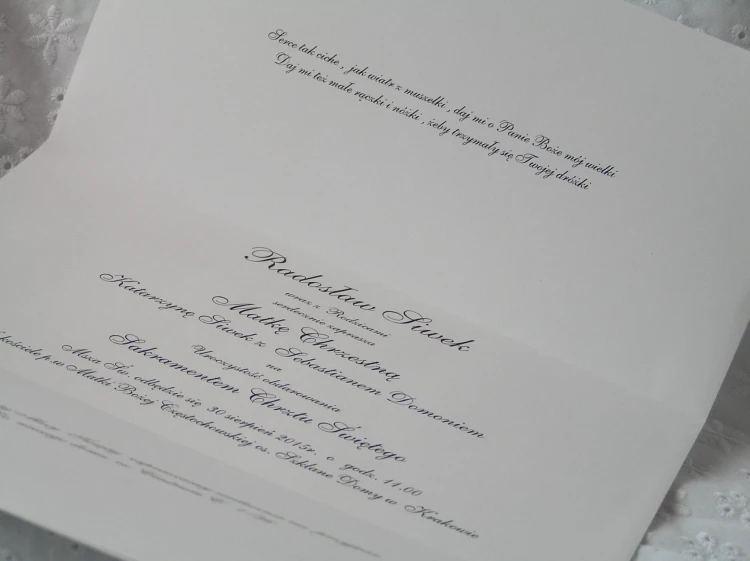 Serce tak ciche , jak wiatr z muszelki , daj mi o Panie Boże mój wielki
Daj mi też małe rączki i nóżki , żeby trzymały się Twojej dróżki
Radosław Siwek
wraz z Rodzicami
serdecznie zaprasza
Matkę Chrzestną
Katarzynę Siwek z Sebastianem Domoniem
na
Uroczystość obdarowania
Sakramentem Chrztu Świętego
Msza Św. odbędzie się 30 sierpień 2015r. o godz. 11.00
kościele p.w Matki Bożej Częstochowskiej os. Szklane Domy w Krakowie